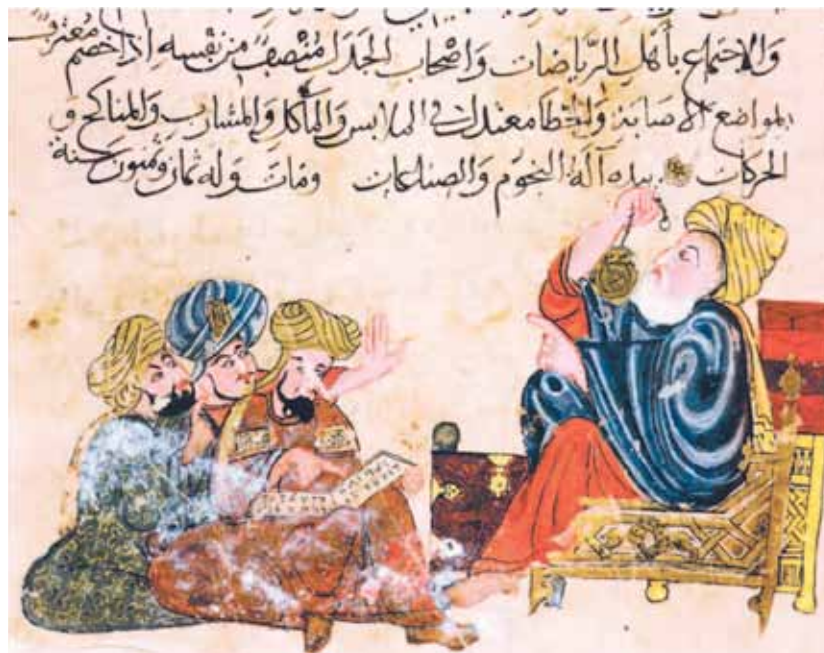 والاجتماع بأهل الرياضات واصحاب الجدل منصف من نفسه اذا خصم معترف
بمواضع الاصابة والخطا معتدل في الملابس والمأكل والمشارب والمناكح و
الحركات بيده آلة النجوم والصناعات ومات وله ثمان وستون سنة